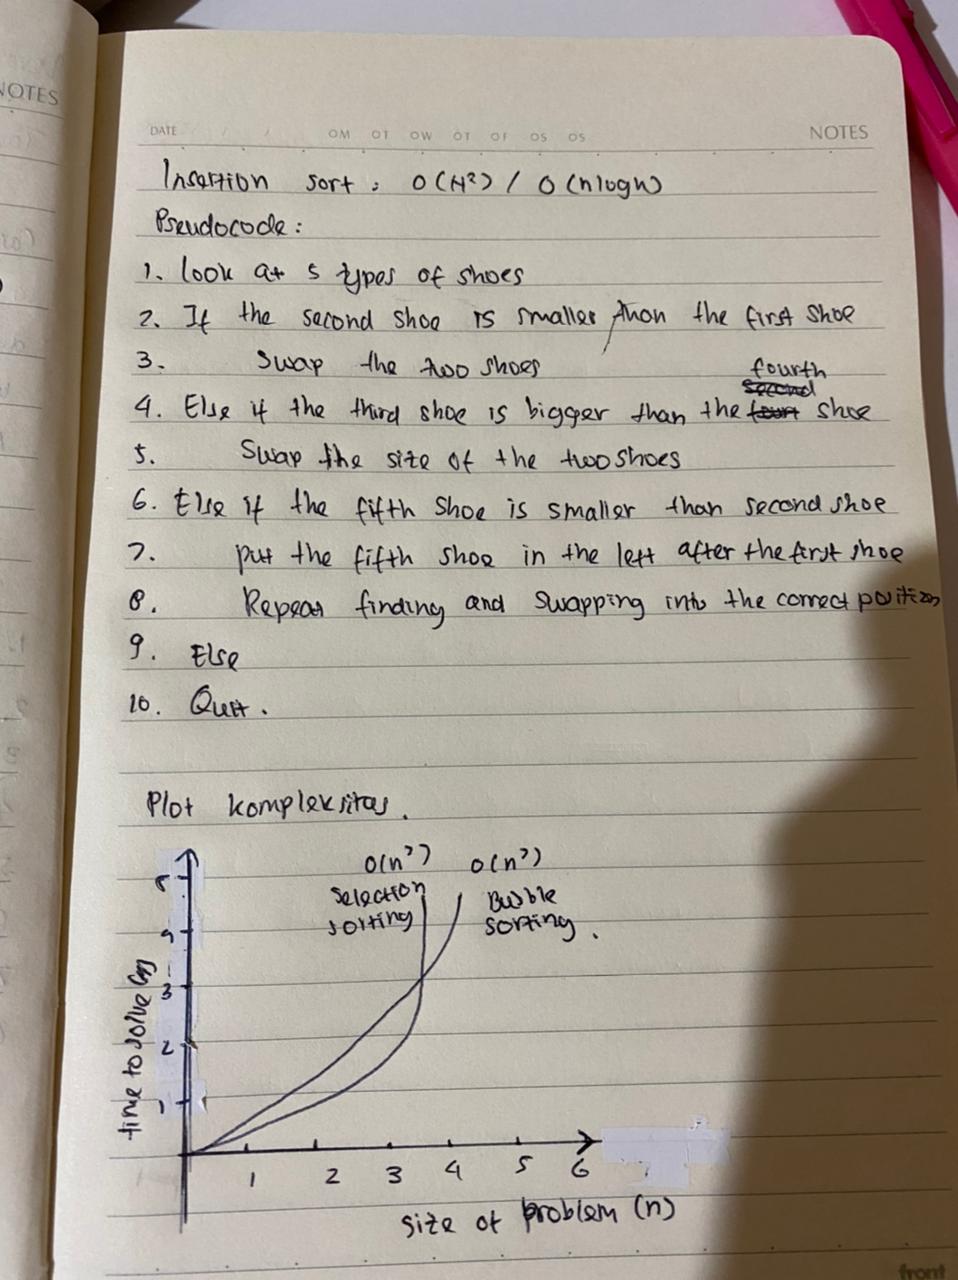 NOTES
DATE / / OM OT OW OT OF OS OS NOTES
Insertion sort : O(N²) / O(n log n)
Pseudocode :
1. look at 5 types of shoes
2. If the second shoe is smaller than the first shoe
3. Swap the two shoes
fourth
4. Else if the third shoe is bigger than the shoe
5. Swap the size of the two shoes
6. Else if the fifth shoe is smaller than second shoe
7. put the fifth shoe in the left after the first shoe
8. Repeat finding and swapping into the correct position
9. Else
10. Quit .
Plot kompleksitas .
O(n²) O(n²)
Selection sorting
Bubble sorting .
5
4
3
2
1
time to solve
1 2 3 4 5 6
size of problem (n)
front